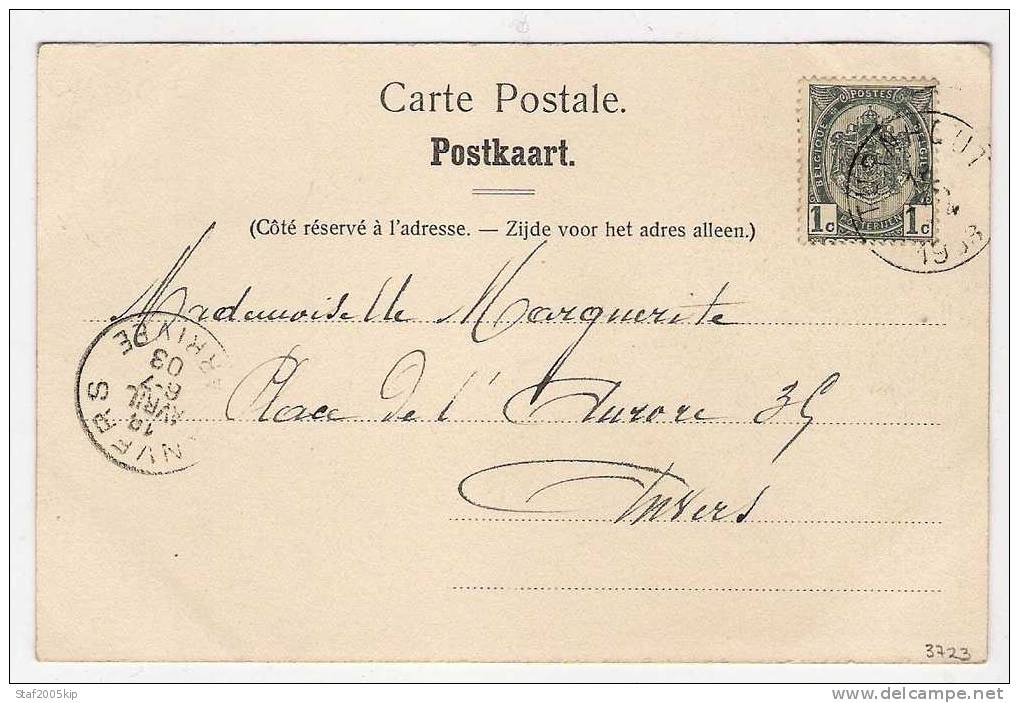 Carte Postale.
Postkaart.
(Côté réservé à l'adresse. — Zijde voor het adres alleen.)
POSTES
BELGIQUE
BELGIË
POSTERIJEN
1c 1c
1903
Mademoiselle Marguerite
Place de l'Aurore 35
Anvers
ANVERS
ARRIVÉE
6-7
AVRIL
03
3723
Staf2005kip
www.delcampe.net